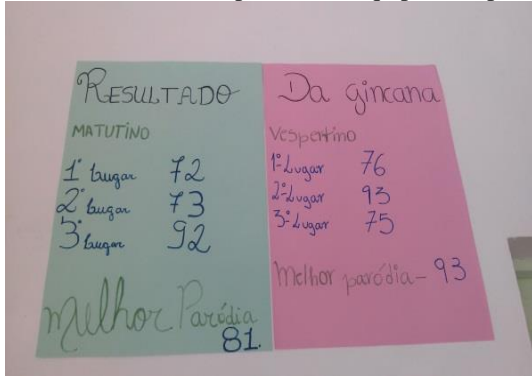 RESULTADO
MATUTINO
1º Lugar 72
2º Lugar 73
3º Lugar 92
Melhor Paródia
81.
Da gincana
Vespertino
1º Lugar 76
2º Lugar 93
3º Lugar 75
Melhor paródia - 93